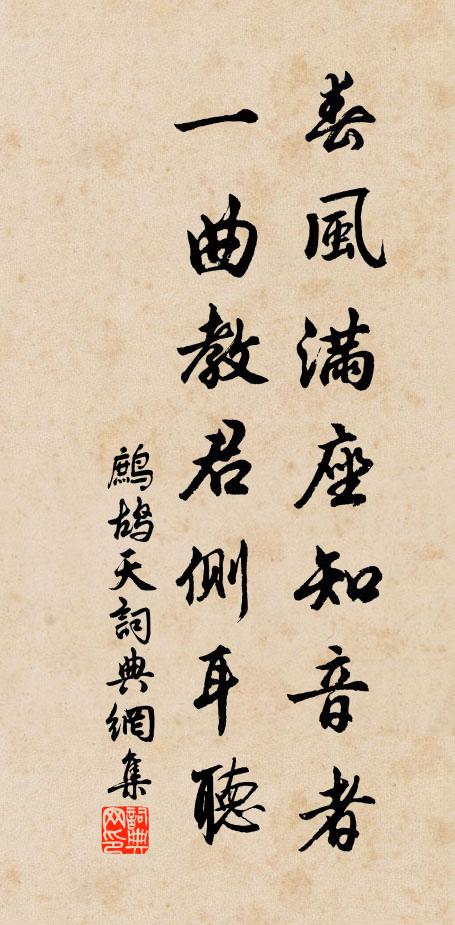 春風滿座知音者
一曲教君側耳聽
鷓鴣天詞典網集
詞典網印